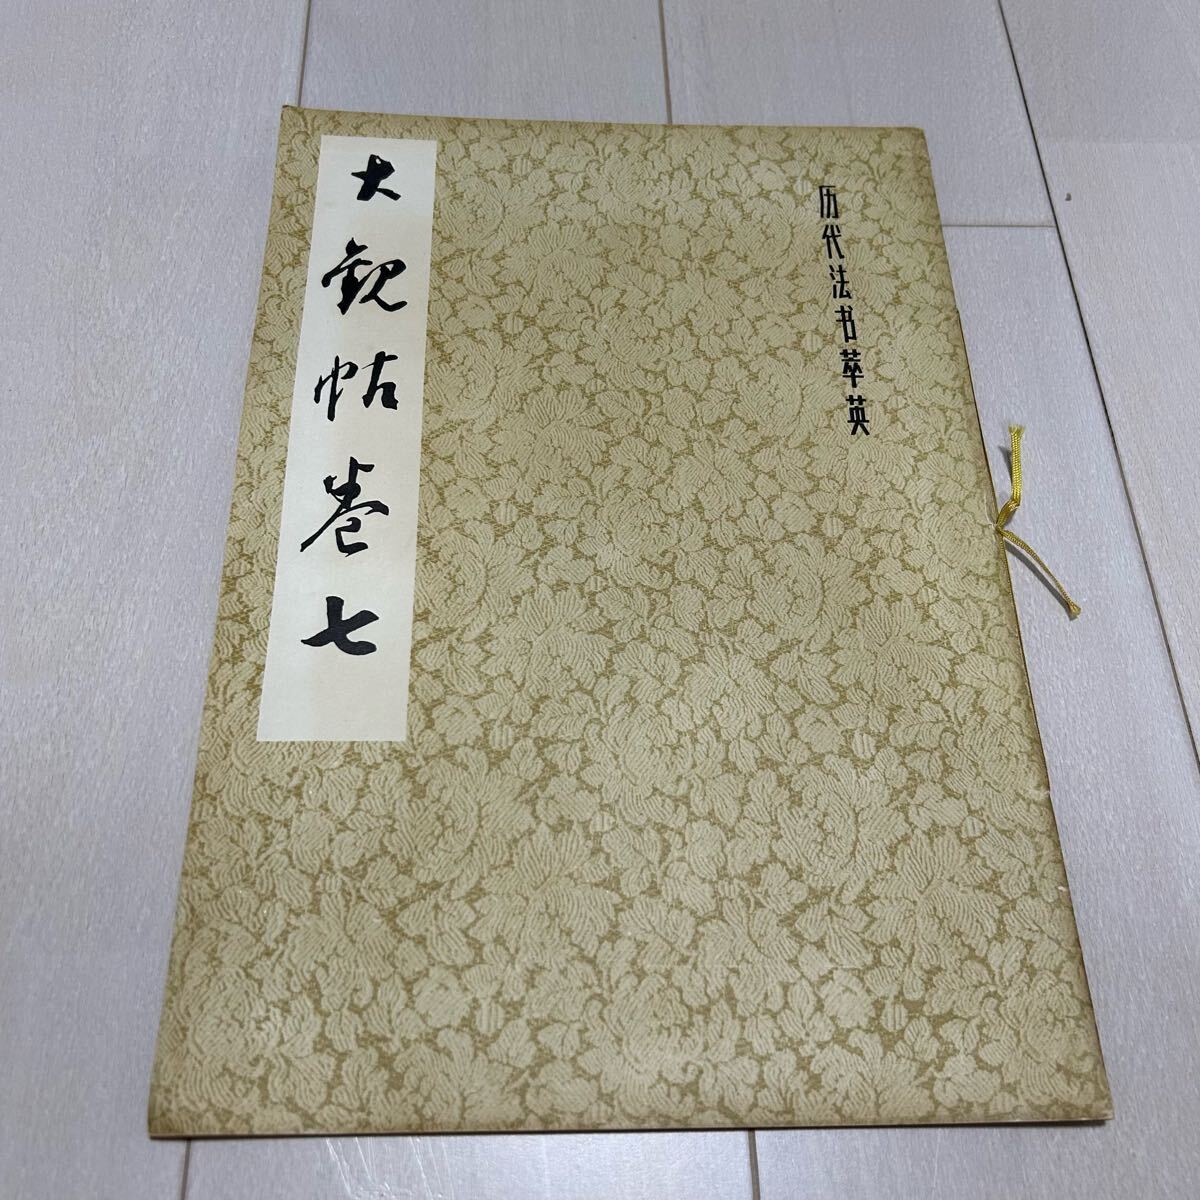 历代法书萃英
大观帖卷七